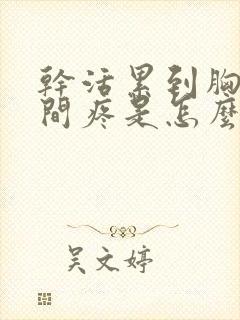 幹活累到胸
間疼是怎麼
吴文婷